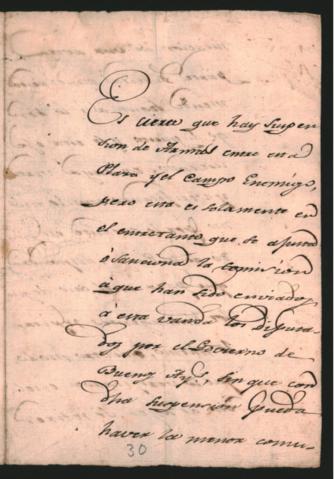 Es cierto que hay suspen
sion de Armas entre esta
Plaza y el Campo Enemigo,
pero esta es solamente en
el entretanto que se ajusta
ó sanciona la comision
a que han sido enviados
a esta vanda los Diputa
dos por el Govierno de
Buenos Ays, sin que con
dha suspencion pueda
haver la menor comu-
30